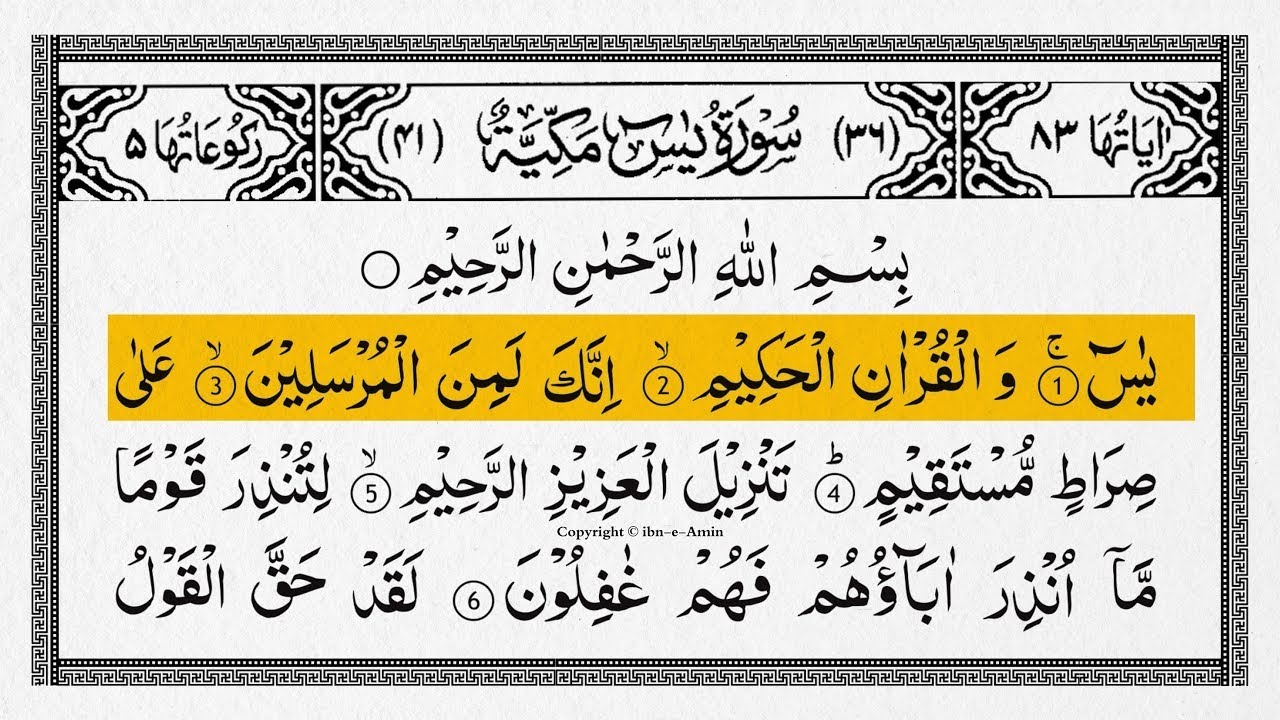 اٰيَاتُهَا ۸۳ (۳۶) سُوْرَةُ يٰسٓ مَكِّيَّةٌ (۴۱) رُكُوْعَاتُهَا ۵
بِسْمِ اللّٰهِ الرَّحْمٰنِ الرَّحِيْمِ ○
يٰسٓ ۚ ① وَ الْقُرْاٰنِ الْحَكِيْمِ ۙ ② اِنَّكَ لَمِنَ الْمُرْسَلِيْنَ ۙ ③ عَلٰى
صِرَاطٍ مُّسْتَقِيْمٍ ؕ ④ تَنْزِيْلَ الْعَزِيْزِ الرَّحِيْمِ ۙ ⑤ لِتُنْذِرَ قَوْمًا
Copyright © ibn-e-Amin
مَّاۤ اُنْذِرَ اٰبَآؤُهُمْ فَهُمْ غٰفِلُوْنَ ⑥ لَقَدْ حَقَّ الْقَوْلُ